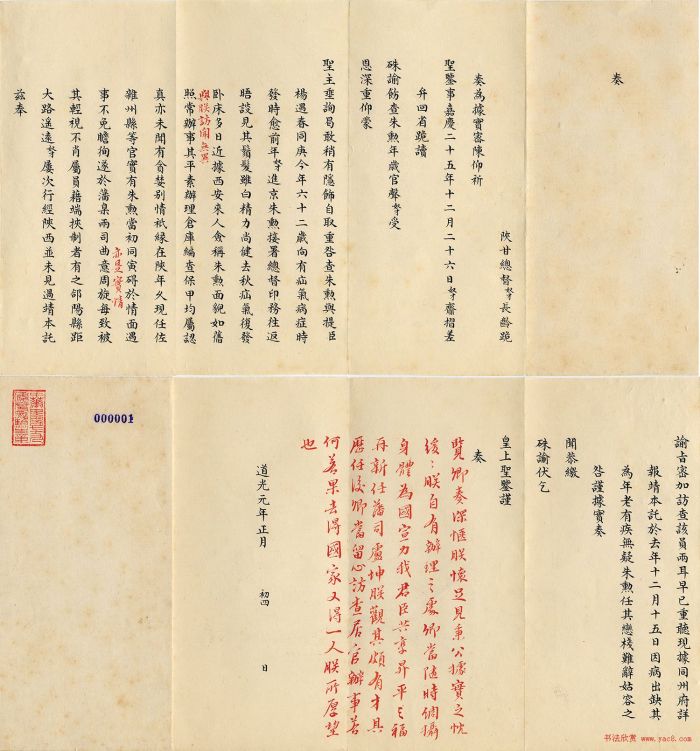 奏
陝甘總督奴才長齡跪
奏為據實審陳仰祈
聖鑒事嘉慶二十五年十二月二十六日奴才齎摺差
弁回省跪讀
硃諭飭查朱勲年歲官聲奴才等受
恩深重仰蒙
聖主垂詢曷敢稍有隱飾自取重咎查朱勲與提臣
楊遇春同庚今年六十二歲向有疝氣病症時
發時愈前年奴才進京朱勲接署總督印務往返
晤談見其鬚髮雖白精力尚健去秋疝氣復發
卧床多日近據西安來人僉稱朱勲面貌如舊
與朕訪聞無異
照常辦事其平素辦理倉庫編查保甲均屬認
真亦未聞有貪婪別情衹緣在陝年久現任佐
雜州縣等官實有朱勲當初同寅礙於情面遇
事不免瞻徇遂於藩臬兩司曲意周旋每致被
亦是實情
其輕視不肖屬員藉端挾制者有之郃陽縣距
大路遙遠奴才屢次行經陝西並未見過靖本託
茲奉
諭旨審加訪查該員兩耳早已重聽現據同州府詳
報靖本託於去年十二月十五日因病出缺其
為年老有疾無疑朱勲任其戀棧難辭姑容之
咎謹據實奏
聞恭繳
硃諭伏乞
皇上聖鑒謹
奏
覽卿奏深愜朕懷足見秉公據實之忱
後：朕自有辦理之處卿當隨時調攝
身體為國宣力我君臣共享昇平之福
再新任藩司盧坤朕觀其頗有才具
歷任後卿當留心訪查居官辦事若
何若果去得國家又得一人朕所厚望
也
道光元年正月 初四 日
000001
书法欣赏 www.yac8.com